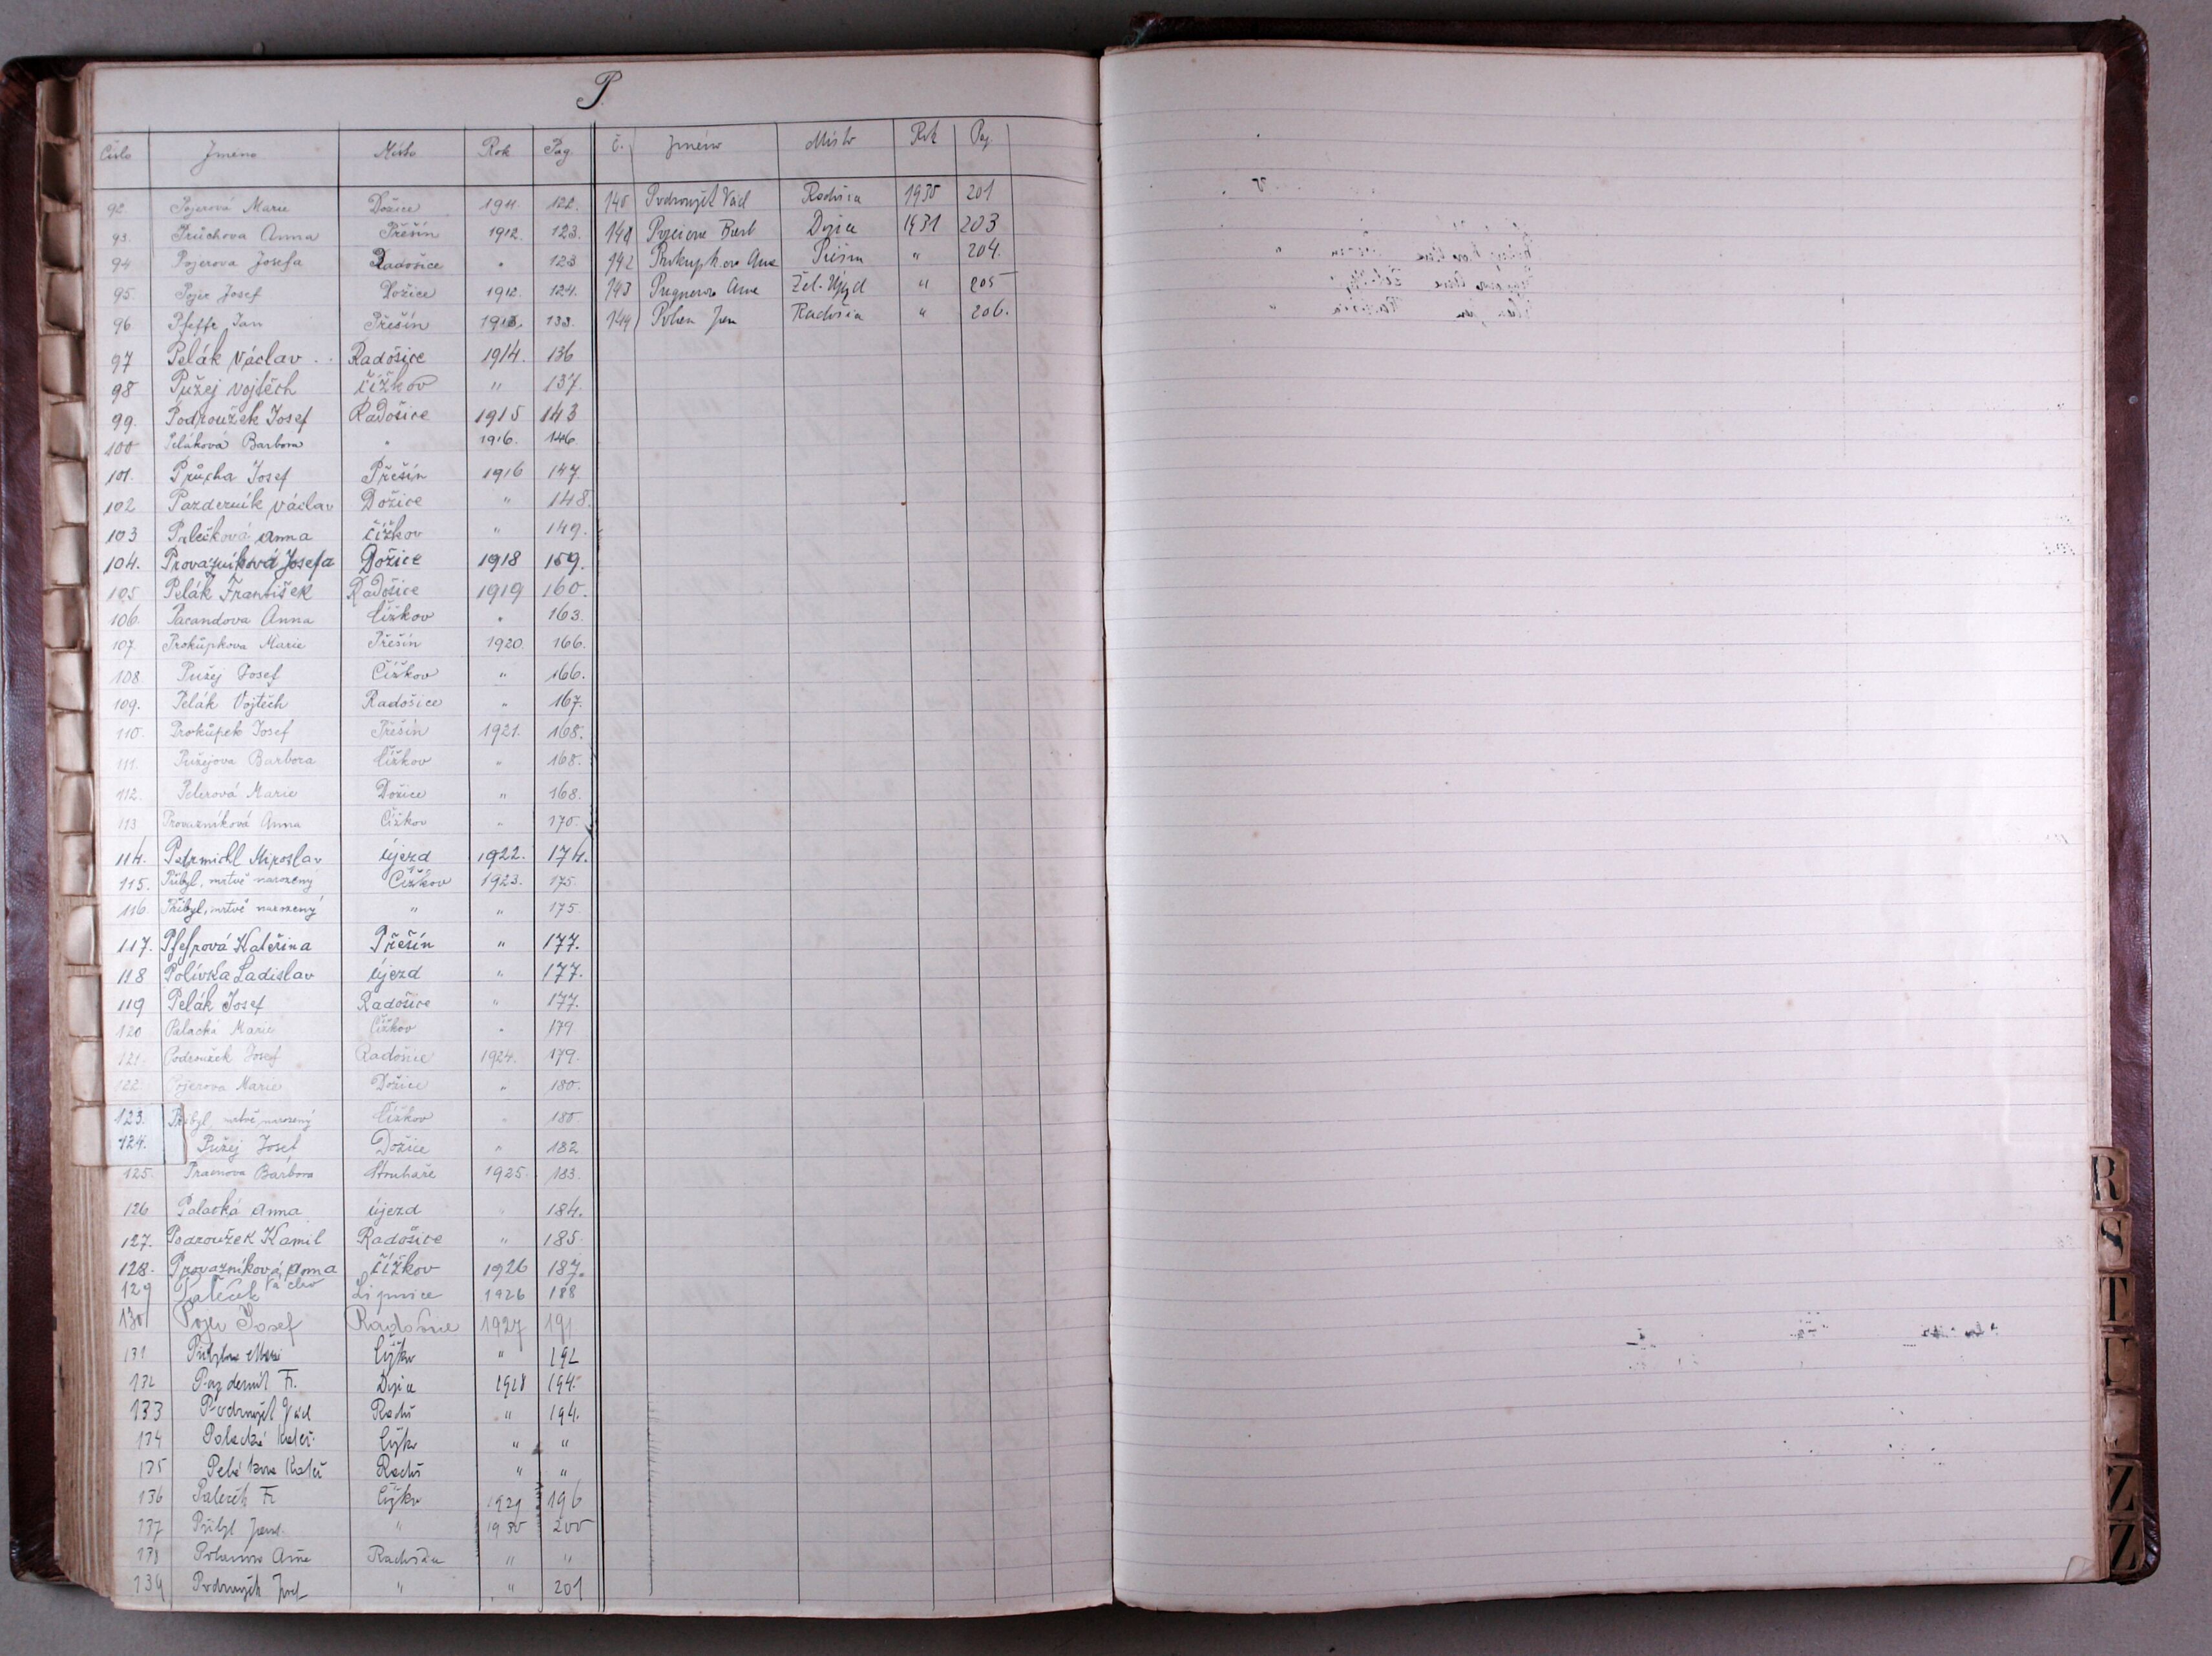 P.
Číslo Jméno Místo Rok Pag.
92. Pojerová Marie Dožice 1911. 122.
93. Průchova Anna Přešín 1912. 123.
94 Pojerova Josefa Radošice " 123
95. Pojer Josef Dožice 1912. 124.
96. Pfeffr Jan Přešín 1913. 133.
97 Pelák Václav Radošice 1914. 136
98 Pužej Vojtěch Čížkov " 137.
99. Podroužek Josef Radošice 1915 143
100 Peláková Barbora " 1916. 146
101. Průcha Josef Přešín 1916 147.
102 Pazderník Václav Dožice " 148.
103 Palečková Anna Čížkov " 149.
104. Provazníková Josefa Dožice 1918 159.
105 Pelák František Radošice 1919 160.
106. Parandova Anna Čížkov " 163.
107. Prokůpkova Marie Přešín 1920. 166.
108. Pužej Josef Čížkov " 166.
109. Pelák Vojtěch Radošice " 167.
110. Prokůpek Josef Přešín 1921. 168.
111. Pužejova Barbora Čížkov " 168.
112. Pelirová Marie Dožice " 168.
113 Provazníková Anna Čížkov " 170.
114. Petrmichl Miroslav újezd 1922. 174.
115. Přibyl, mrtvě narozený Čížkov 1923. 175.
116. Přibyl, mrtvě narozený " " 175.
117. Pfefrová Kateřina Přešín " 177.
118 Polívka Ladislav újezd " 177.
119 Pelák Josef Radošice " 177.
120 Palacká Marie Čížkov " 179
121. Podroužek Josef Radošice 1924. 179.
122 Pojerova Marie Dožice " 180.
123. Přibyl, mrtvě narozený Čížkov " 180.
124. Pužej Josef Dožice " 182
125. Barbora 1925. 183.
126 Palacká Anna újezd " 184.
127. Podroužek Kamil Radošice " 185.
128. Provazníková Anna Čížkov 1926 187.
129 Paleček Václav Lipnice 1926 188
130 Pojer Josef Radošice 1927 191
131 " 192
132 Pazderník Fr. 1928 194.
133 Václ " 194.
134 Kateř. " "
135 Kateř " "
136 Paleček Fr 1929 196
137 Přibyl " 1930 200
138 " "
139 " " 201
č. Jméno Místo Rok Pag.
140 Podroužek Václ Radošice 1930 201
141 1931 203
142 Přešín " 204.
143 Žel. Újezd " 205
144 Radošice " 206.
R
S
T
U
Z
Z